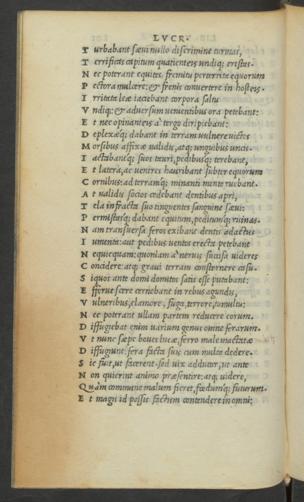 LVCR·
T urbabant sæui nullo discrimine turmas,
T errificas capitum quatientes undiq; cristas.
N ec poterant equites fremitu perterrita equorum
P ectora mulcere: & frenis conuertere in hosteis.
I rritata leæ iaciebant corpora saltu
V ndiq; & aduersum uenientibus ora petebant:
E t nec opinanteis à tergo diripiebant;
D eplexæq; dabant in terram uulnere uictos
M orsibus affixæ ualidis, atq; unguibus uncis.
I actabantq; suos tauri, pedibusq; terebant,
E t latera, ac uentres hauribant subter equorum
C ornibus: ad terramq; minanti mente ruebant.
A t ualidis socios cædebant dentibus apri;
T ela infracta suo tinguentes sanguine sæui;
P ermistasq; dabant equitum, peditumq; ruinas.
N am transuersa feros exibant dentis adactus
I umenta: aut pedibus uentos erecta petebant
N equicquam: quoniam à neruis succisa uideres
C oncidere: atq; graui terram consternere casu.
S iquos ante domi domitos satis esse putabant:
E fferuescere cernebant in rebus agundis,
V ulneribus, clamore, fuga, terrore, tumultu:
N ec poterant ullam partem reducere eorum.
D iffugiebat enim uarium genus omne ferarum.
V t nunc sæpe boues lucæ, ferro male mactatæ
D iffugiunt: fera facta suis cum multa dedere.
S ic fuit, ut facerent. sed uix adducor, ut ante
N on quierint animo præsentire: atq; uidere,
Quàm commune malum fieret, fœdumq; futurum.
E t magis id possis factum contendere in omni;